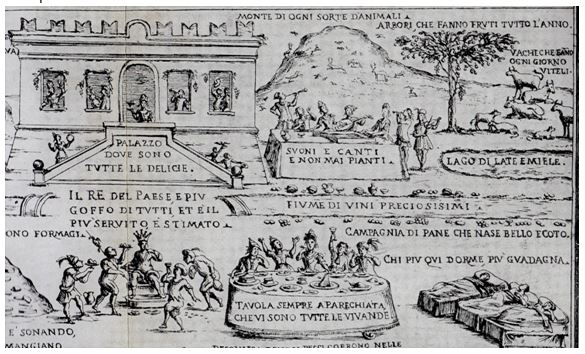 MONTE DI OGNI SORTE D'ANIMALI
ARBORI CHE FANNO FRUTI TUTTO L'ANNO.
VACHE CHE FANO
OGNI GIORNO
VITELI
PALAZZO
DOVE SONO
TUTTE LE DELICIE.
SUONI E CANTI
E NON MAI PIANTI
LAGO DI LATE E MIELE.
IL RE DEL PAESE E PIV
GOFFO DI TUTTI ET E IL
PIV SERVITO E STIMATO
FIUME DI VINI PRECIOSISIMI
ONO FORMAGI
CAMPAGNIA DI PANE CHE NASE BELLO E COTO.
CHI PIV QVI DORME PIV GVADAGNA.
TAVOLA SEMPRE APARECHIATA
CHE VI SONO TUTTE LE VIVANDE
E' SONANDO,
MANGIANO
CORRONO NELLE